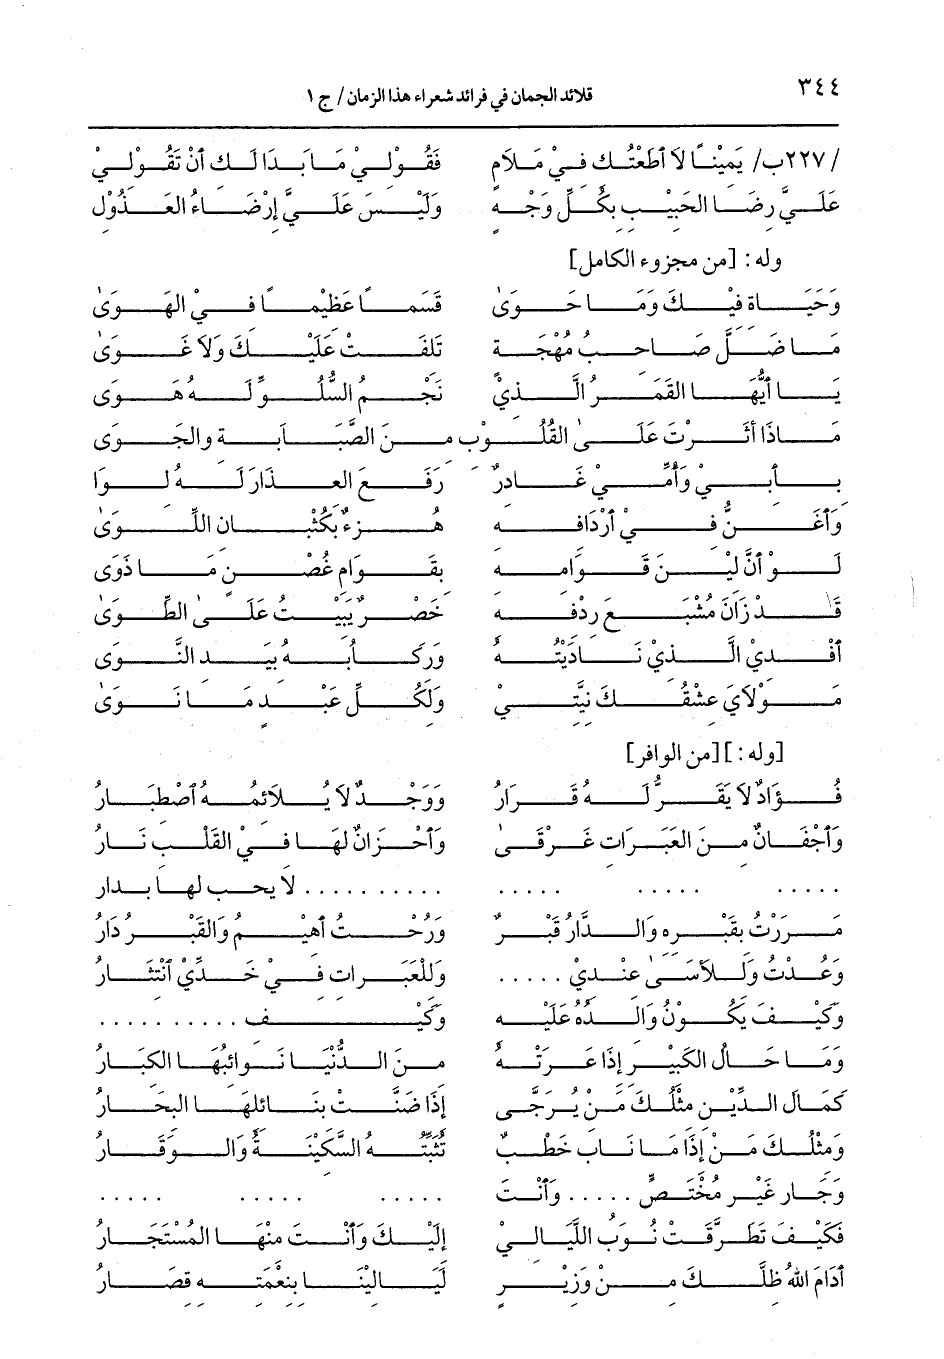 ٣٤٤
قلائد الجمان في فرائد شعراء هذا الزمان/ ج ١
/٢٢٧ب/ يَمِيْناً لاَ أَطَعْتُك فِيْ مَلاَمٍ فَقُوْلِيْ مَا بَدَا لَك أَنْ تَقُولِيْ
عَلَيَّ رِضَا الحَبِيْبِ بِكُلِّ وَجْهٍ وَلَيْسَ عَلَيَّ إِرْضَاءُ العَذُوْلِ
وله: [من مجزوء الكامل]
وَحَيَاةِ فِيْكَ وَمَا حَوَىٰ قَسَماً عَظِيْماً فِيْ الهَوَىٰ
مَا ضَلَّ صَاحِبُ مُهْجَةٍ تَلِفَتْ عَلَيْكَ وَلاَ غَوَىٰ
يَا أَيُّهَا القَمَرُ الَّذِيْ نَجْمُ السُّلُوِّ لَهُ هَوَى
مَاذَا أَثَرْتَ عَلَىٰ القُلُوْبِ مِنَ الصَّبَابَةِ والجَوَى
بِأَبِيْ وَأُمِّيْ غَادِرٌ رَفَعَ العِذَارَ لَهُ لِوَا
وَأَغَنُّ فِيْ أَرْدَافِهِ هُزءٌ بِكُثْبَانِ اللِّوَىٰ
لَوْ أَنَّ لِيْنَ قَوَامِهِ بِقَوَامِ غُصْنٍ مَا ذَوَى
قَدْ زَانَ مُشْبَعَ رِدْفِهِ خَصْرٌ يَبِيْتُ عَلَىٰ الطِّوَىٰ
أَفْدِيْ الَّذِيْ نَادَيْتُهُ وَرِكَابُهُ بِيَدِ النَّوَى
مَوْلاَيَ عِشْقُكَ نِيَّتِيْ وَلِكُلِّ عَبْدٍ مَا نَوَىٰ
[وله:] [من الوافر]
فُؤَادٌ لاَ يَقَرُّ لَهُ قَرَارُ وَوَجْدٌ لاَ يُلاَئِمُهُ اصْطِبَارُ
وَأَجْفَانٌ مِنَ العَبَرَاتِ غَرْقَىٰ وَأَحْزَانٌ لَهَا فِيْ القَلْبِ نَارُ
..... ..... ..... .......... لا يحب لها بدار
مَرَرْتُ بِقَبْرِهِ وَالدَّارُ قَبْرٌ وَرُحْتُ أَهِيْمُ وَالقَبْرُ دَارُ
وَعُدْتُ وَلِلأَسَىٰ عِنْدِيْ ..... وَلِلْعَبَرَاتِ فِيْ خَدِّيْ انْتِثَارُ
وَكَيْفَ يَكُوْنُ وَالِدُهُ عَلَيْهِ وَكَيْف ..........
وَمَا حَالُ الكَبِيْرِ إِذَا عَرَتْهُ مِنَ الدُّنْيَا نَوَائِبُهَا الكِبَارُ
كَمَالَ الدِّيْنِ مِثْلُكَ مَنْ يُرَجَّى إِذَا ضَنَّتْ بِنَائِلِهَا البِحَارُ
وَمِثْلُكَ مَنْ إِذَا مَا نَابَ خَطْبٌ تُثَبِّتُهُ السَّكِيْنَةُ وَالوَقَارُ
وَجَار غَيْر مُخْتَصٍّ ..... وَأَنْتَ ..... ..... .....
فَكَيْفَ تَطَرَّقَتْ نُوَبُ اللَّيَالِيْ إِلَيْكَ وَأَنْتَ مِنْهَا المُسْتَجَارُ
أَدَامَ اللهُ ظِلَّكَ مِنْ وَزِيْرٍ لَيَالِيْنَا بِنِعْمَتِهِ قِصَارُ